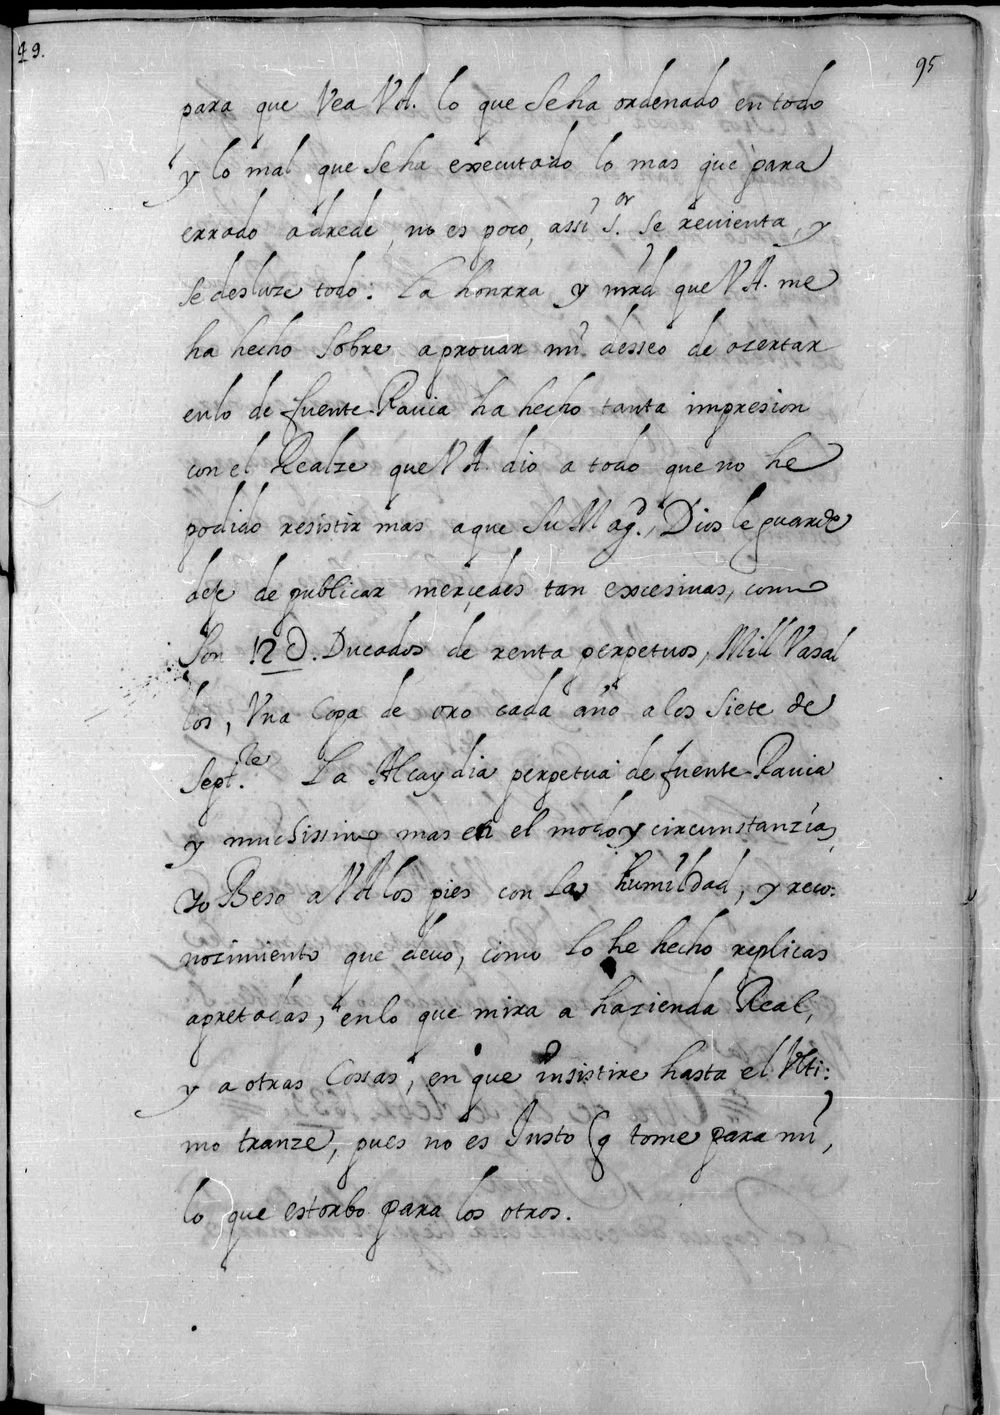 49.
95
para que Vea VA. lo que se ha ordenado en todo
y lo mal que se ha executado lo mas que para
errado adrede, no es poco, assi s.or se reuienta, y
se desluze todo: La honrra y mrd que VA. me
ha hecho sobre aprouar mi desseo de acertar
en lo de fuente-Rauia ha hecho tanta impresion
con el Realze que VA. dio a todo que no he
podido resistir mas a que Su Magd., Dios le guarde
deje de publicar merçedes tan excesiuas, como
son 12 D. Ducados de renta perpetuos, Mill Vasal
los, Vna Copa de oro cada año a los siete de
Sept.re La Alcaydia perpetua de fuente-Rauia
y muchissimo mas en el modo y circunstanzias,
Yo Beso a VA los pies con la humildad, y reco:
nozimiento que deuo, como lo he hecho replicas
apretadas, en lo que mira a hazienda Real,
y a otras Cossas, en que insistire hasta el Vlti:
mo tranze, pues no es Iusto q tome para mi,
lo que estorbo para los otros.